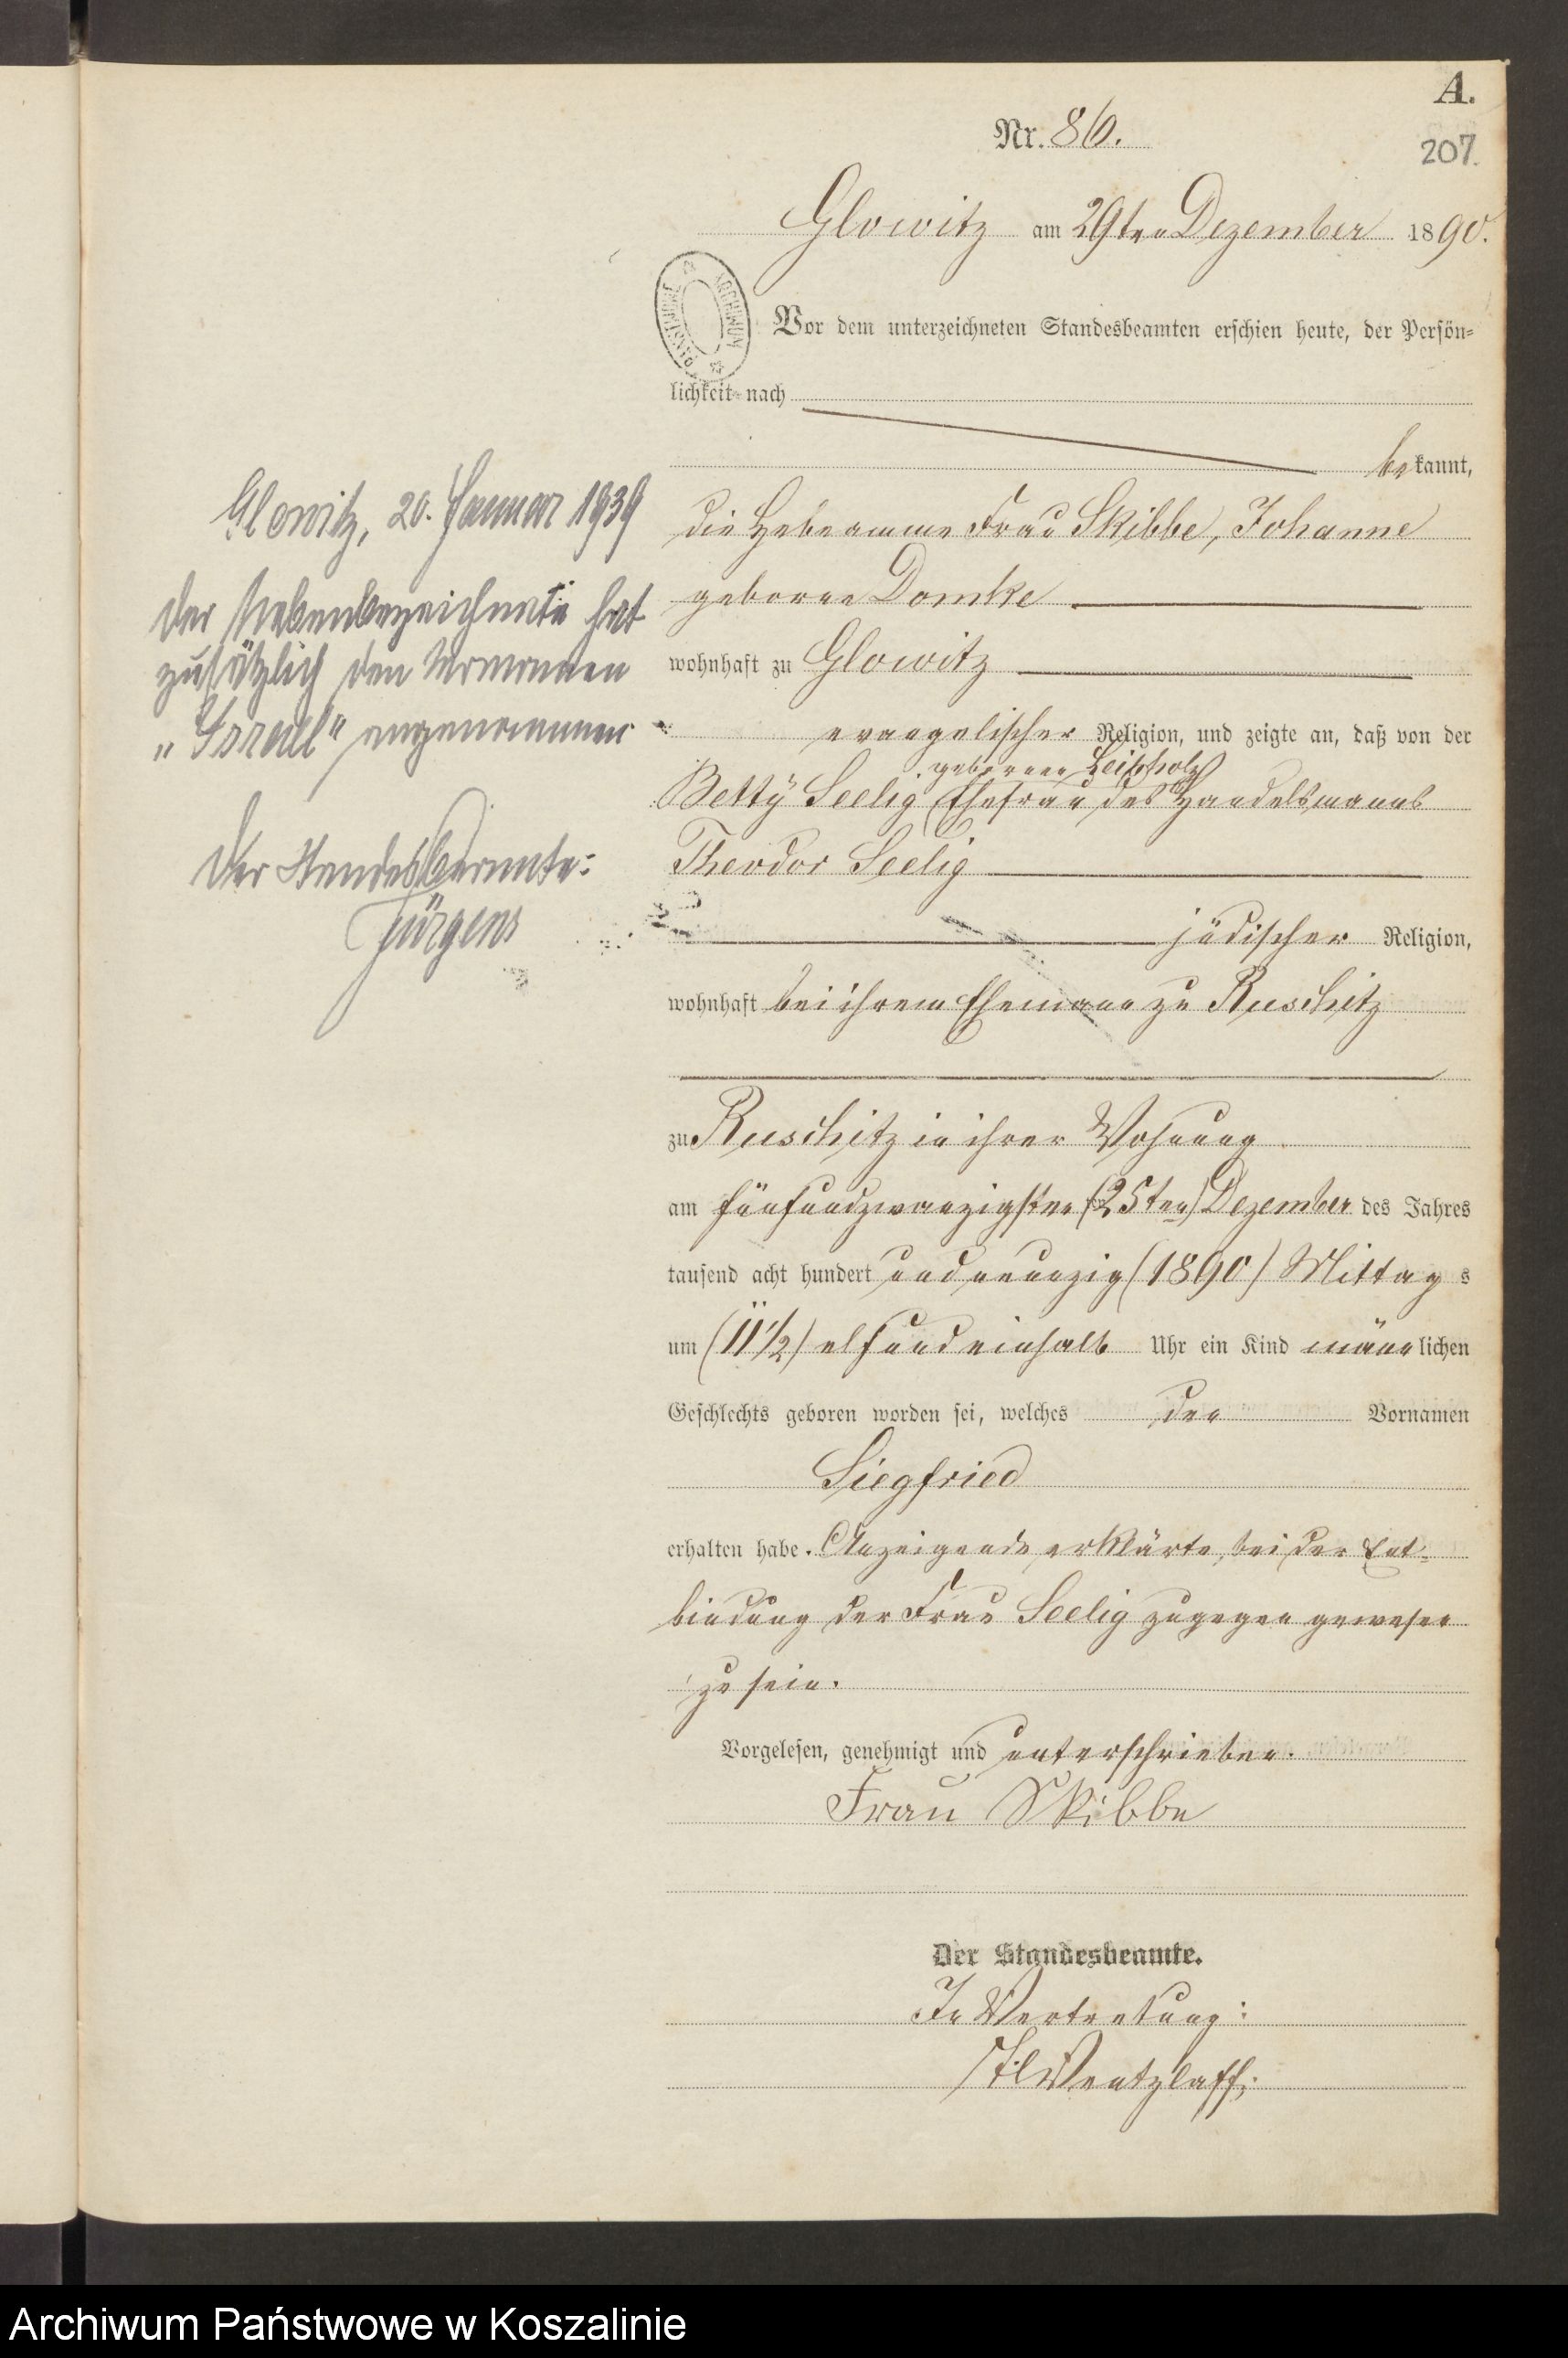 A.
Nr. 86.
207.
Glowitz am 29ten Dezember 1890.
ARCHIWUM PAŃSTWOWE
Vor dem unterzeichneten Standesbeamten erschien heute, der Persön-
lichkeit nach
bekannt,
die Hebeamme Frau Skibbe, Johanne
geborne Domke
wohnhaft zu Glowitz
evangelischer Religion, und zeigte an, daß von der
geborenen Leipholz
Betty Seelig Ehefrau des Handelsmanns
Theodor Seelig
jüdischer Religion,
wohnhaft bei ihrem Ehemann zu Ruschitz
zu Ruschitz in ihrer Wohnung
am fünfundzwanzigsten (25ten) Dezember des Jahres
tausend acht hundert und neunzig (1890) Mittags
um (11 1/2) elfundeinhalb Uhr ein Kind männlichen
Geschlechts geboren worden sei, welches den Vornamen
Siegfried
erhalten habe. Anzeigende erklärte, bei der Ent-
bindung der Frau Seelig zugegen gewesen
zu sein.
Vorgelesen, genehmigt und unterschrieben.
Frau Skibbe
Der Standesbeamte.
In Vertretung:
Wentzlaff.
Glowitz, 20. Januar 1939
Der Nebenbezeichnete hat
zusätzlich den Vornamen
„Israel“ angenommen
Der Standesbeamte:
Jürgens
Archiwum Państwowe w Koszalinie